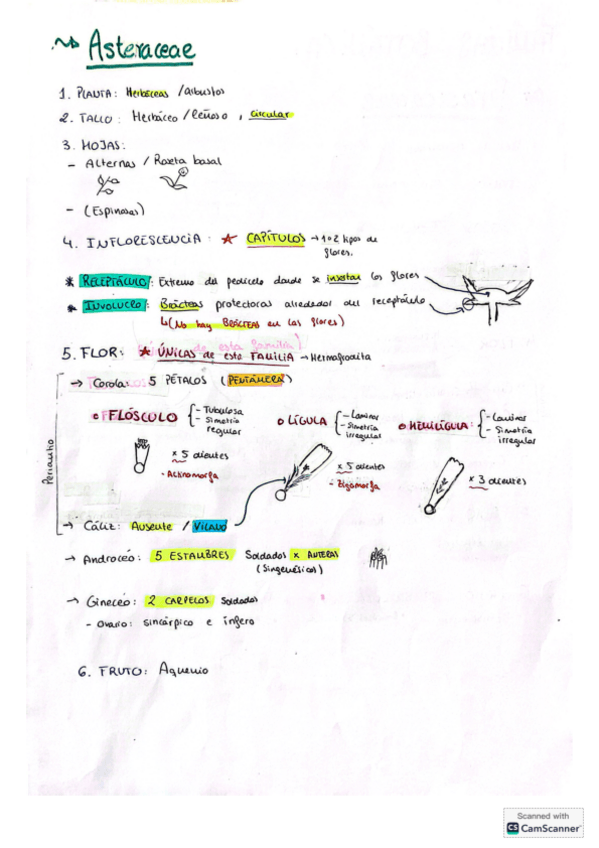 Asteraceae
1. PLANTA: Herbáceas / arbustos
2. TALLO: Herbáceo / leñoso, circular
3. HOJAS:
- Alternas / Roseta basal
- (Espinosas)
4. INFLORESCENCIA: ★ CAPÍTULOS → 1 o 2 tipos de flores.
* RECEPTÁCULO: Extremo del pedicelo donde se insertan las flores
* INVOLUCRO: Brácteas protectoras alrededor del receptáculo
↳ (No hay BRÁCTEAS en las flores)
5. FLOR: ★ ÚNICAS de esta FAMILIA → Hermafrodita
Perianto
→ Corola: 5 PÉTALOS (PENTÁMERA)
o FLÓSCULO { - Tubulosa - Simetría regular
x 5 dientes
- Actinomorfa
o LÍGULA { - Laminar - Simetría irregular
x 5 dientes
- Zigomorfa
o HEMILÍGULA: { - Laminar - Simetría irregular
x 3 dientes
→ Cáliz: Ausente / VILANO
→ Androceo: 5 ESTAMBRES soldados x ANTERAS
(Singenésicos)
→ Gineceo: 2 CARPELOS soldados
- Ovario: sincárpico e ínfero
6. FRUTO: Aquenio
Scanned with
CS CamScanner